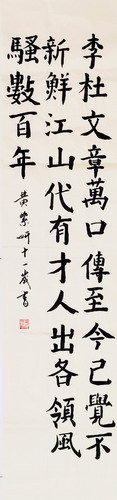 李杜文章萬口傳至今已覺不
新鮮江山代有才人出各領風
騷數百年
黄紫妍十一歲書